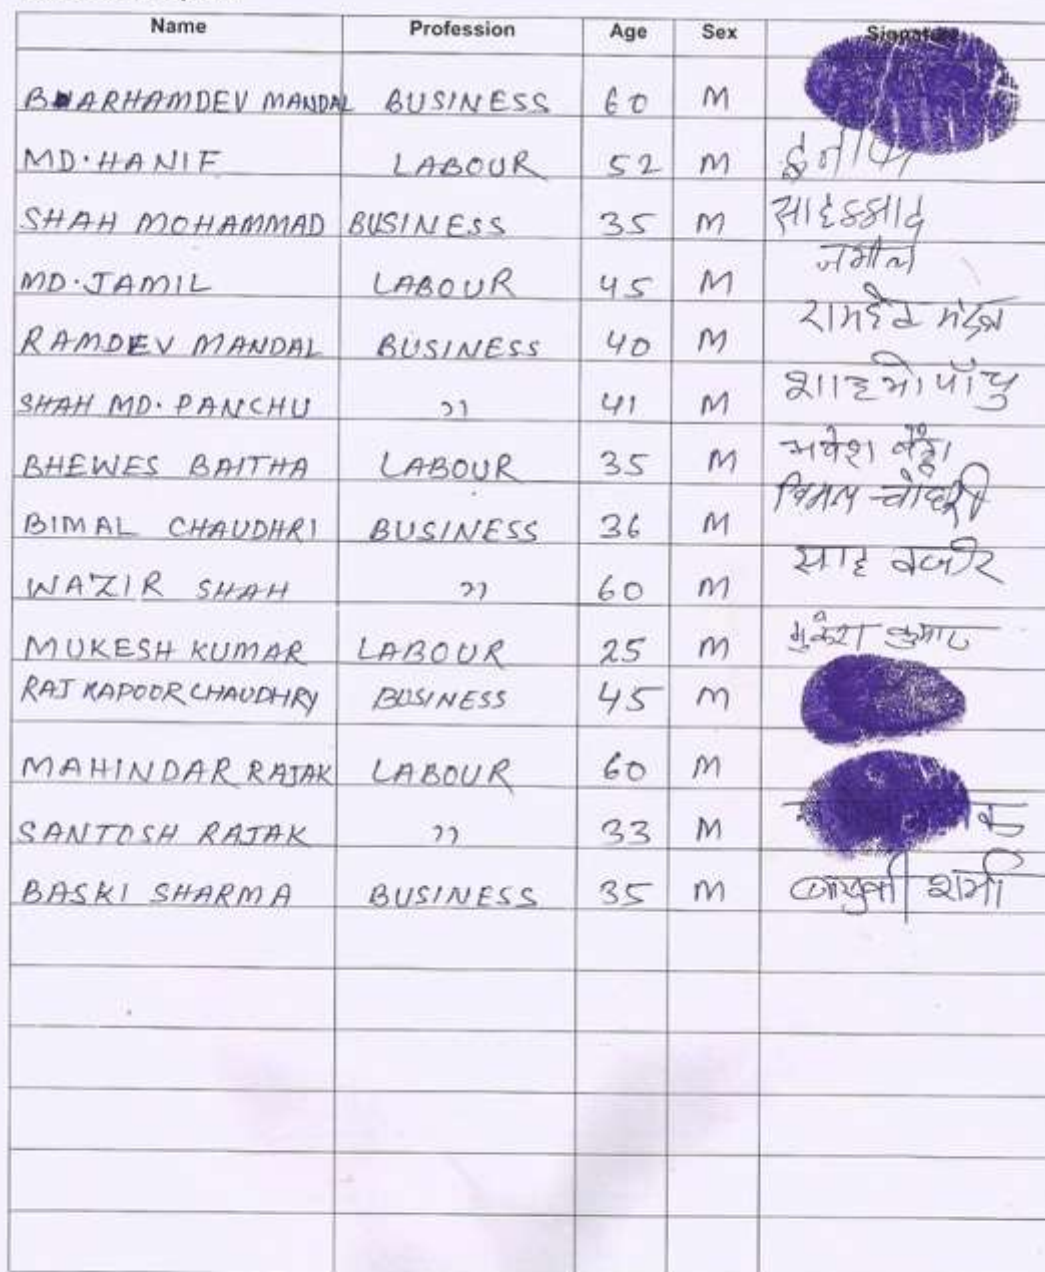 Name Profession Age Sex Signature
BHARHAMDEV MANDAL BUSINESS 60 M
MD. HANIF LABOUR 52 M
SHAH MOHAMMAD BUSINESS 35 M
MD. JAMIL LABOUR 45 M जमील
RAMDEV MANDAL BUSINESS 40 M रामदेव मंडल
SHAH MD. PANCHU " 41 M शाह मो पाँचु
BHEWES BAITHA LABOUR 35 M
BIMAL CHAUDHRI BUSINESS 36 M विमल चौधरी
WAZIR SHAH " 60 M साह वजीर
MUKESH KUMAR LABOUR 25 M मुकेश कुमार
RAJ KAPOOR CHAUDHRY BUSINESS 45 M
MAHINDAR RAJAK LABOUR 60 M
SANTOSH RAJAK " 33 M
BASKI SHARMA BUSINESS 35 M शर्मा